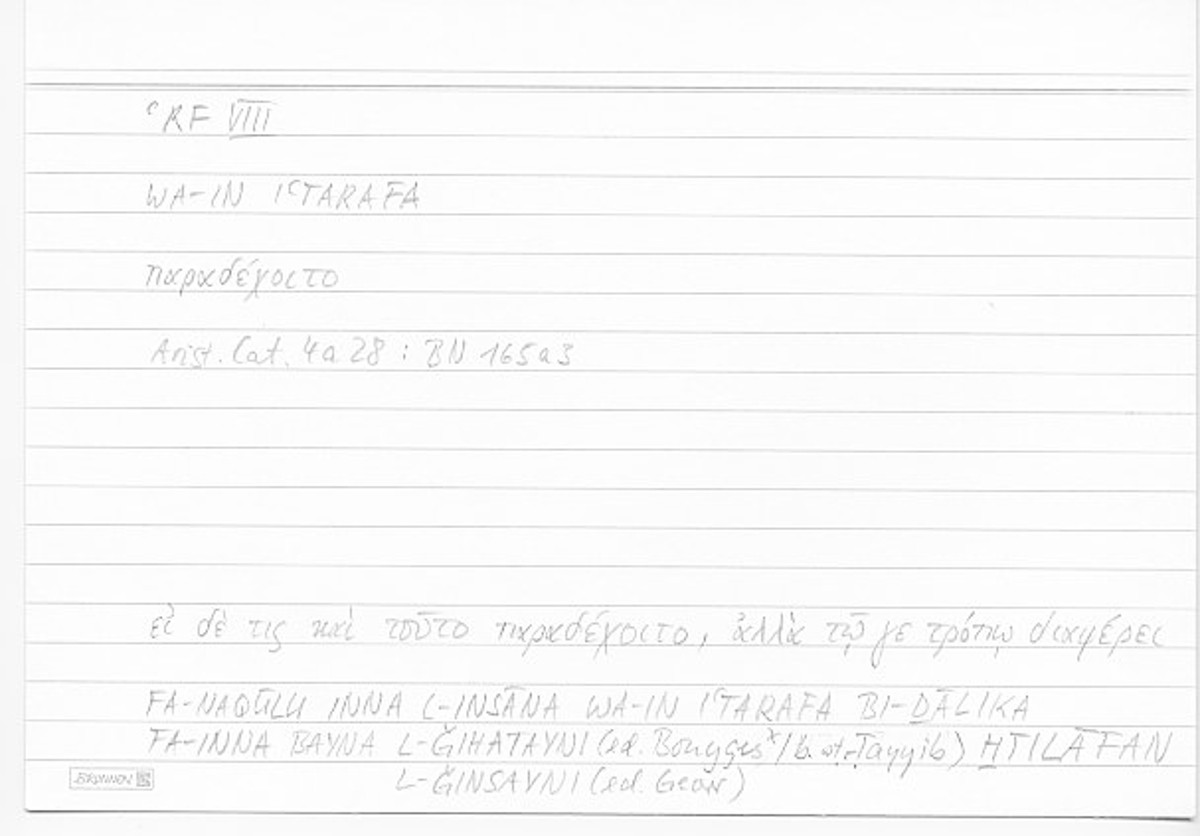 ʿRF VIII
WA-IN IʿTARAFA
παραδέχοιτο
Arist. Cat. 4a28 : BN 165a3
εἰ δέ τις καὶ τοῦτο παραδέχοιτο, ἀλλὰ τῷ γε τρόπῳ διαφέρει
FA-NAQŪLU INNA L-INSĀNA WA-IN IʿTARAFA BI-ḎĀLIKA
FA-INNA BAYNA L-ǦIHATAYNI (ed. Bouyges / b. aṭ-Ṭayyib) ḪTILĀFAN
L-ǦINSAYNI (ed. Georr)
BRUNNEN